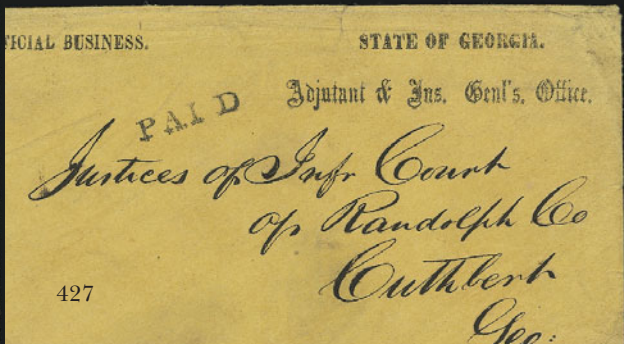 FICIAL BUSINESS.
STATE OF GEORGIA.
Adjutant & Ins. Genl's. Office.
PAID
Justices of Infr Court
of Randolph Co
Cuthbert
Geo:
427